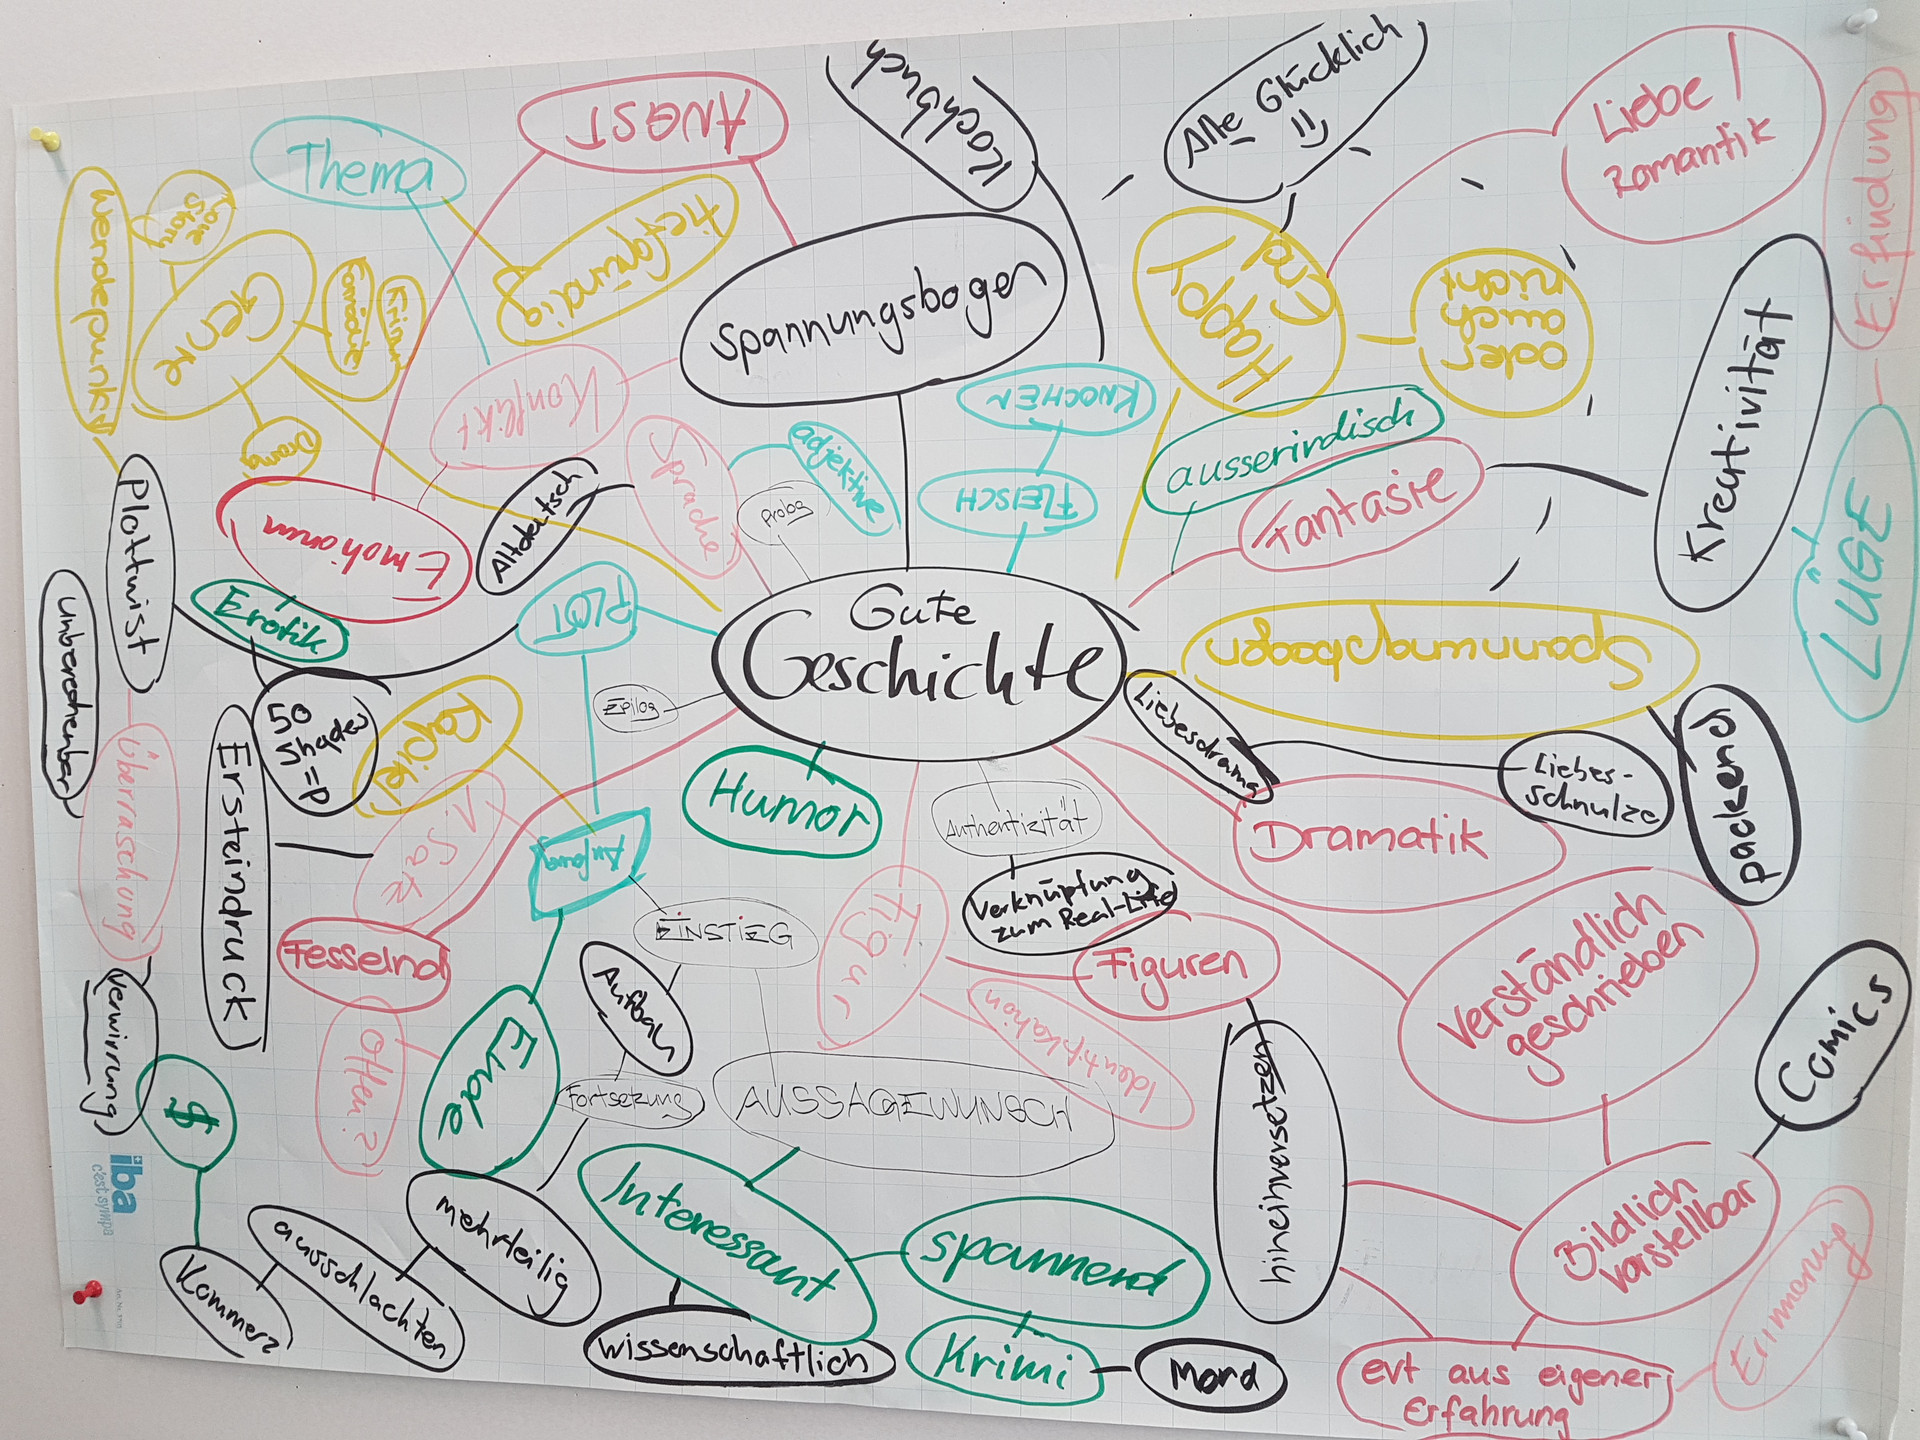 Gute
Geschichte
Spannungsbogen
ANGST
Thema
tiefgründig
Kochbuch
Alle Glücklich
Happy
End
oder
auch
nicht
Liebe /
Romantik
Erfindung
LÜGE
Kreativität
ausserirdisch
Fantasie
KNOCHEN
FLEISCH
adjektive
Prolog
Sprache
Altdeutsch
Konflikt
Emotionen
Erotik
50
Shades
Wendepunkt
Love
Story
Genre
Komödie
Krimi
Drama
Plottwist
Unberechenbar
Überraschung
Verwirrung
$
Kommerz
ausschlachten
mehrteilig
Fortsetzung
Aufbau
EINSTIEG
AUSSAGEWUNSCH
Anfang
PLOT
Epilog
Kapitel
1. Satz
Ersteindruck
Fesselnd
Offen?
Ende
Humor
Authentizität
Verknüpfung
zum Real-Life
Figur
Figuren
Identifikation
hineinversetzen
Interessant
spannend
wissenschaftlich
Krimi
Mord
Spannungsbogen
packend
Liebesdrama
Liebes-
schnulze
Dramatik
Verständlich
geschrieben
Bildlich
vorstellbar
Comics
evt aus eigener
Erfahrung
Erinnerung
iba
c'est sympa